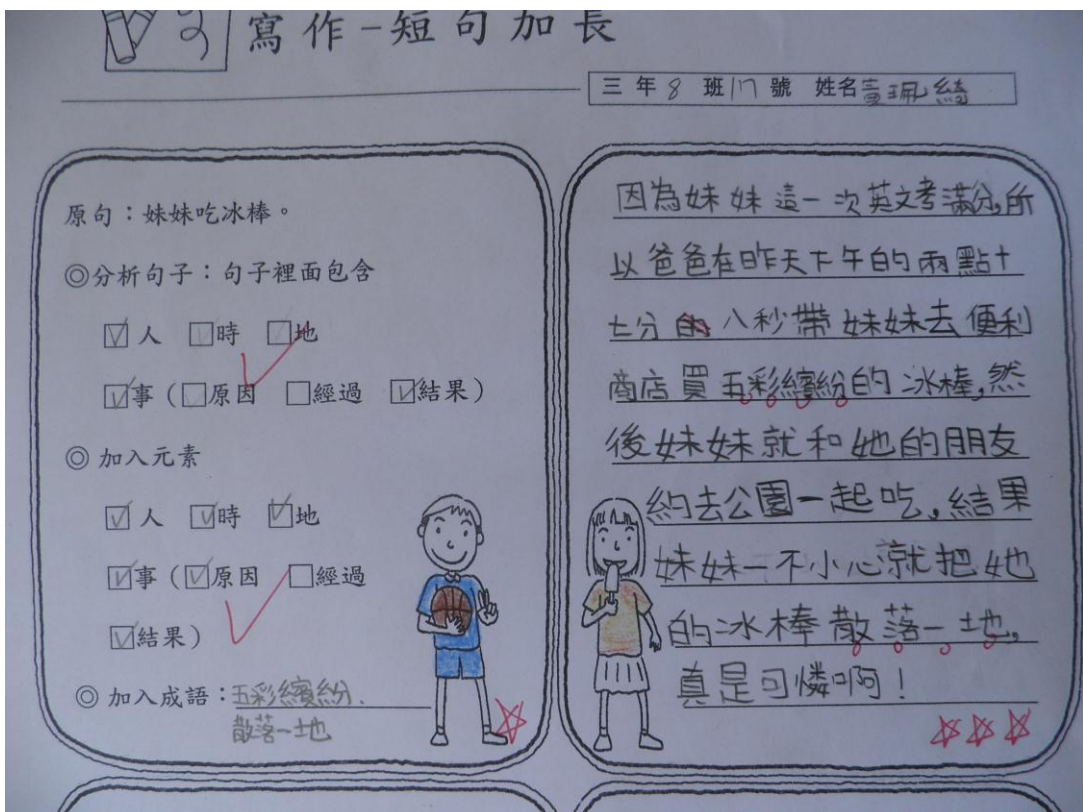 寫作-短句加長
三年8班17號 姓名黃珮綺
原句：妹妹吃冰棒。
◎分析句子：句子裡面包含
☑人 □時 □地
☑事（□原因 □經過 ☑結果）
◎ 加入元素
☑人 ☑時 ☑地
☑事（☑原因 □經過
☑結果）
◎ 加入成語：五彩繽紛、
散落一地
因為妹妹這一次英文考滿分,所
以爸爸在昨天下午的兩點十
七分 八秒帶妹妹去便利
商店買五彩繽紛的冰棒,然
後妹妹就和她的朋友
約去公園一起吃,結果
妹妹一不小心就把她
的冰棒散落一地,
真是可憐啊！